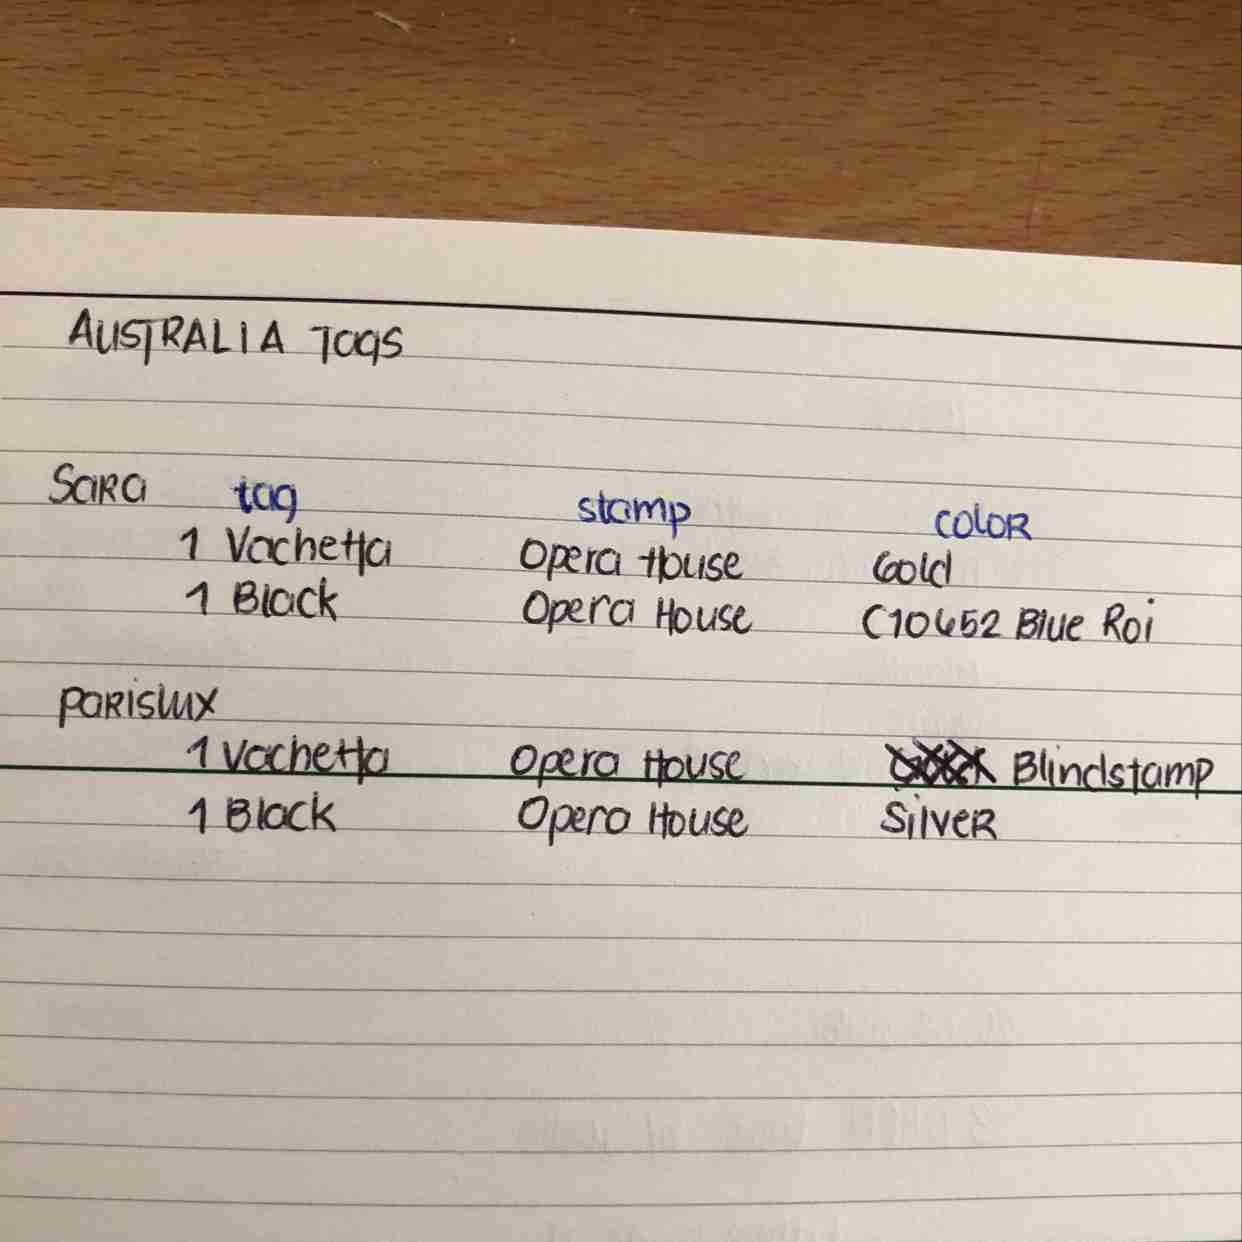 AUSTRALIA Tags
Sara tag stamp COLOR
1 Vachetta Opera House Gold
1 Black Opera House C10652 Blue Roi
PARISLUX
1 Vachetta Opera House Blindstamp
1 Black Opera House SilveR